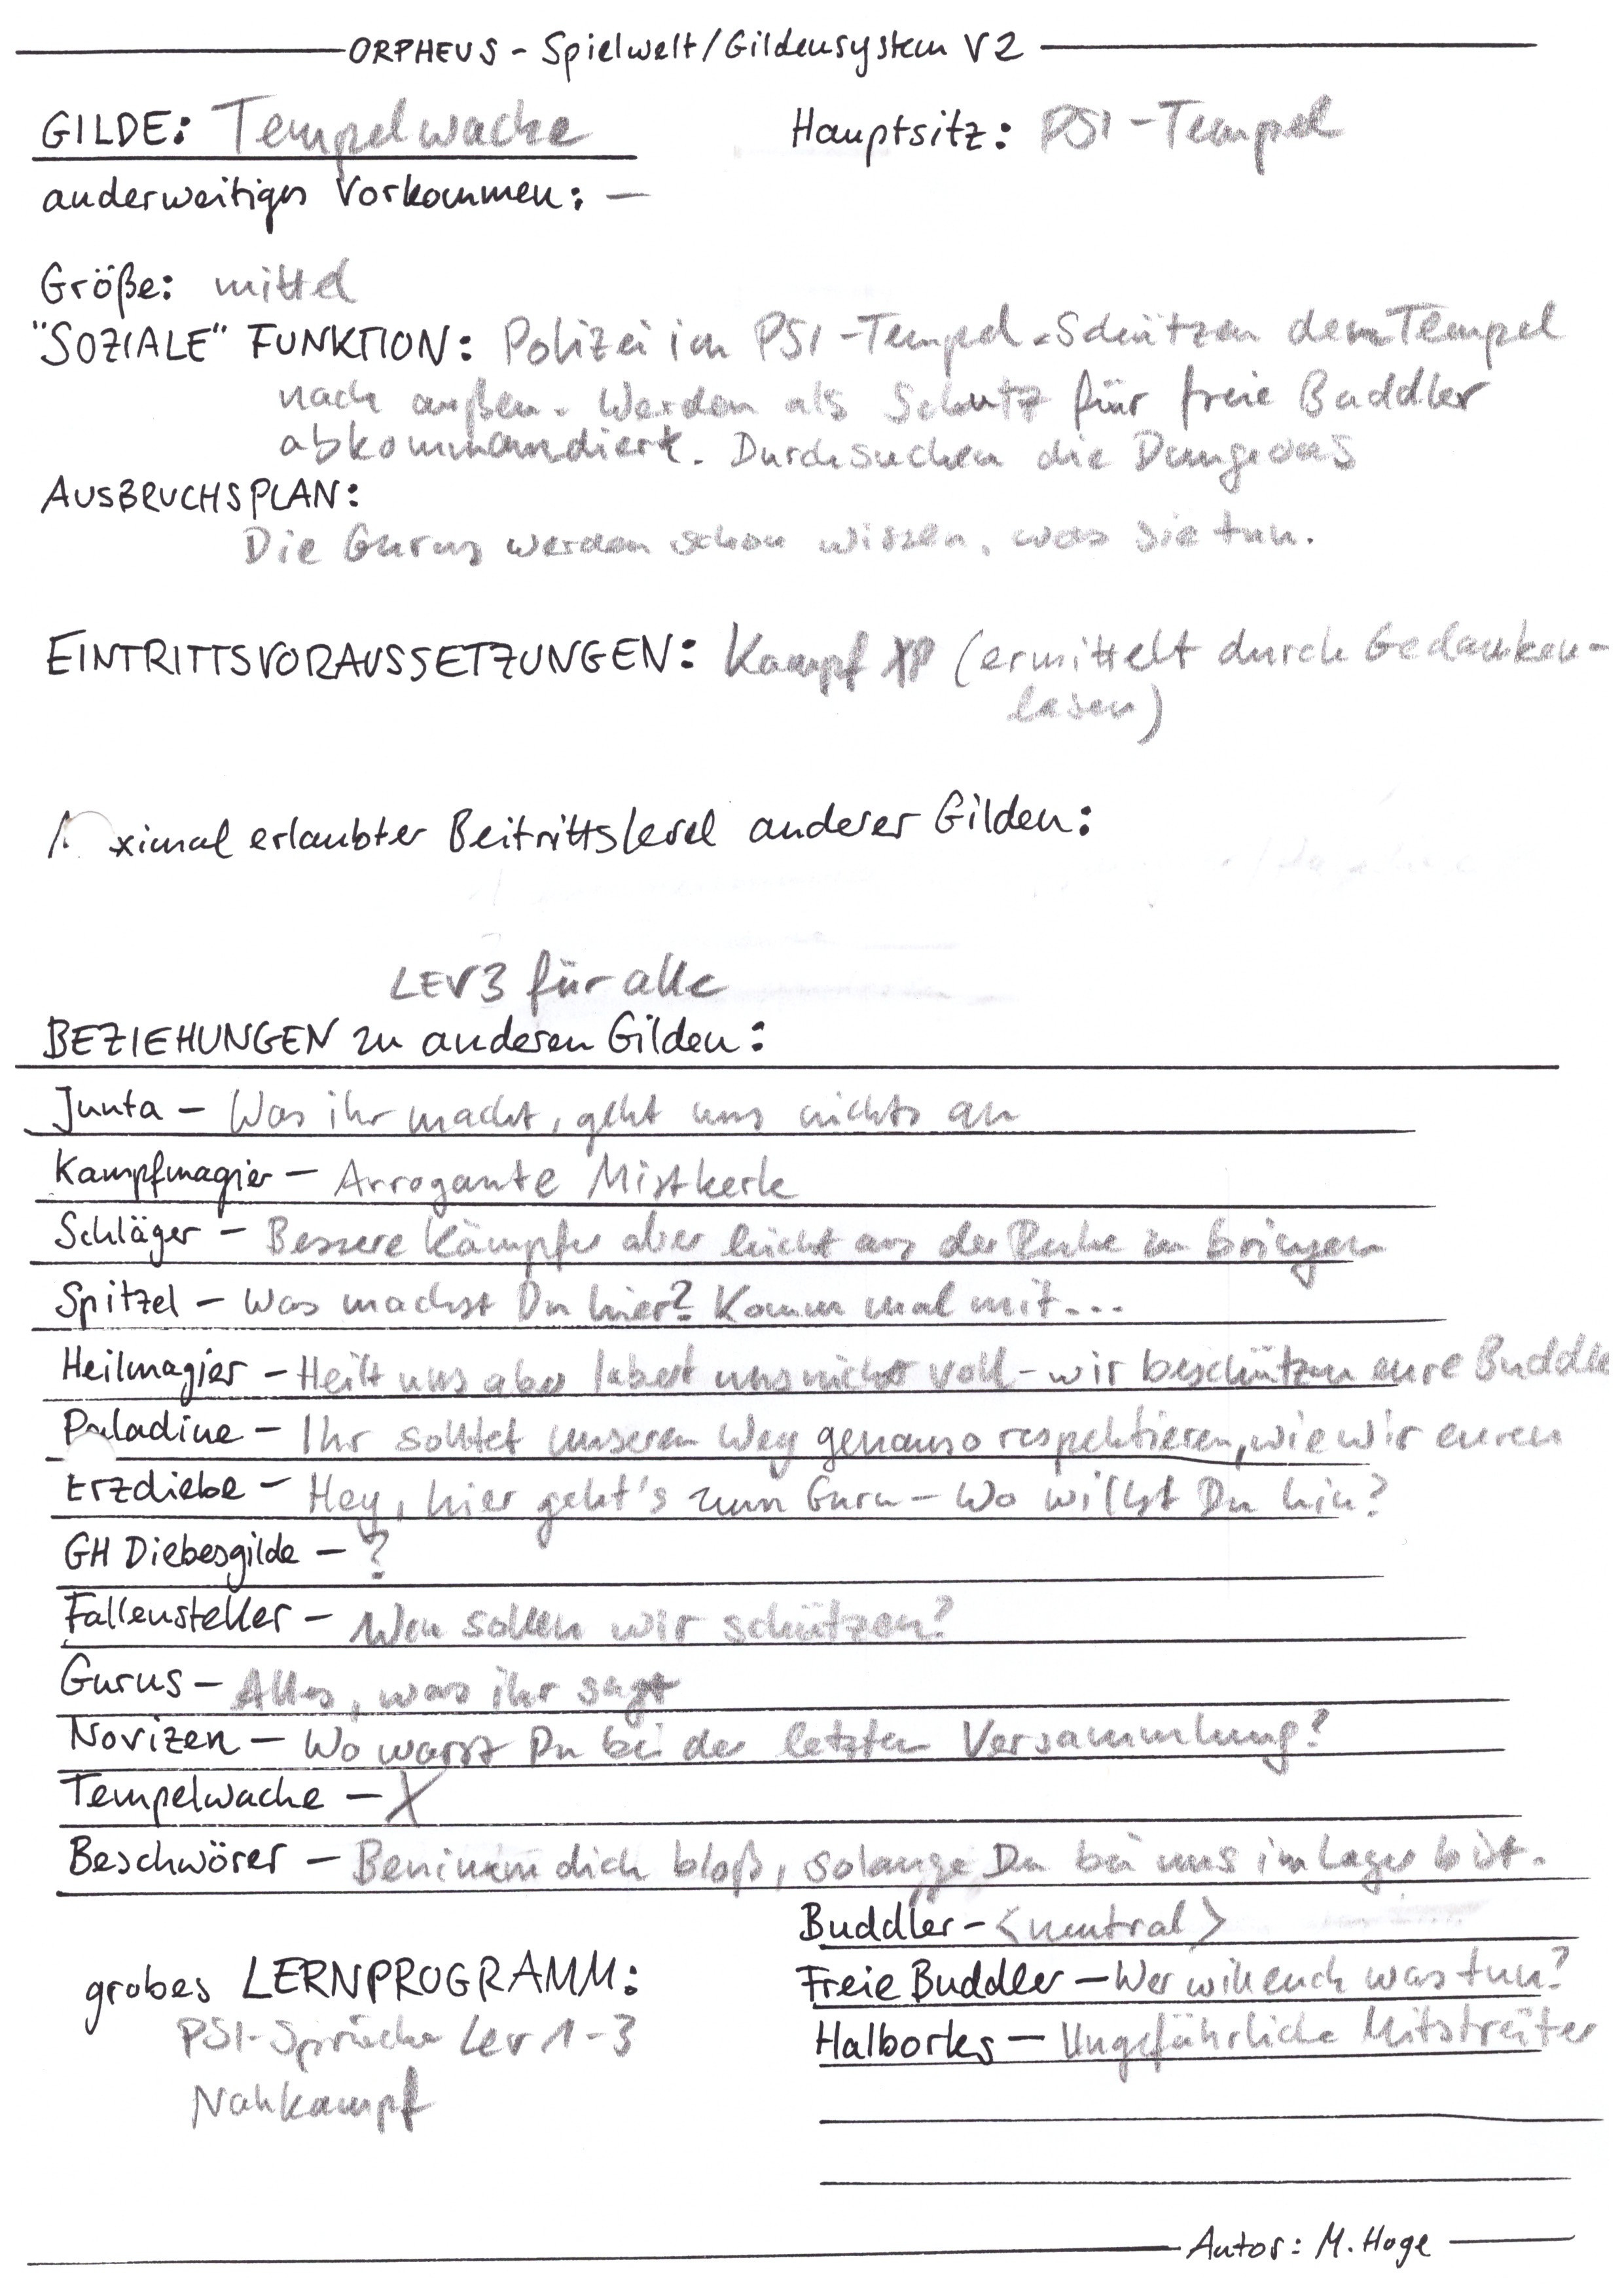 ORPHEUS - Spielwelt/Gildensystem V2
GILDE: Tempelwache Hauptsitz: PSI-Tempel
anderweitiges Vorkommen: —
Größe: mittel
"SOZIALE" FUNKTION: Polizei im PSI-Tempel. Schützen den Tempel
nach außen. Werden als Schutz für freie Buddler
abkommandiert. Durchsuchen die Dungeons
AUSBRUCHSPLAN:
Die Gurus werden schon wissen, was sie tun.
EINTRITTSVORAUSSETZUNGEN: Kampf XP (ermittelt durch Gedanken-
lesen)
ximal erlaubter Beitrittslevel anderer Gilden:
LEV3 für alle
BEZIEHUNGEN zu anderen Gilden:
Junta — Was ihr macht, geht uns nichts an
Kampfmagier — Arrogante Mistkerle
Schläger — Bessere Kämpfer aber leicht aus der Ruhe zu bringen
Spitzel — Was machst Du hier? Komm mal mit...
Heilmagier — Heilt uns aber labert uns nicht voll — wir beschützen eure Buddle
Paladine — Ihr solltet unseren Weg genauso respektieren, wie wir euren
Erzdiebe — Hey, hier geht's zum Guru — Wo willst Du hin?
GH Diebesgilde — ?
Fallensteller — Wen sollen wir schützen?
Gurus — Alles, was ihr sagt
Novizen — Wo warst Du bei der letzten Versammlung?
Tempelwache — X
Beschwörer — Benimm dich bloß, solange Du bei uns im Lager bist.
Buddler — <neutral>
grobes LERNPROGRAMM: Freie Buddler — Wer will euch was tun?
PSI-Sprüche Lev 1-3 Halborks — Ungefährliche Mitstreiter
Nahkampf
Autor: M. Hoge